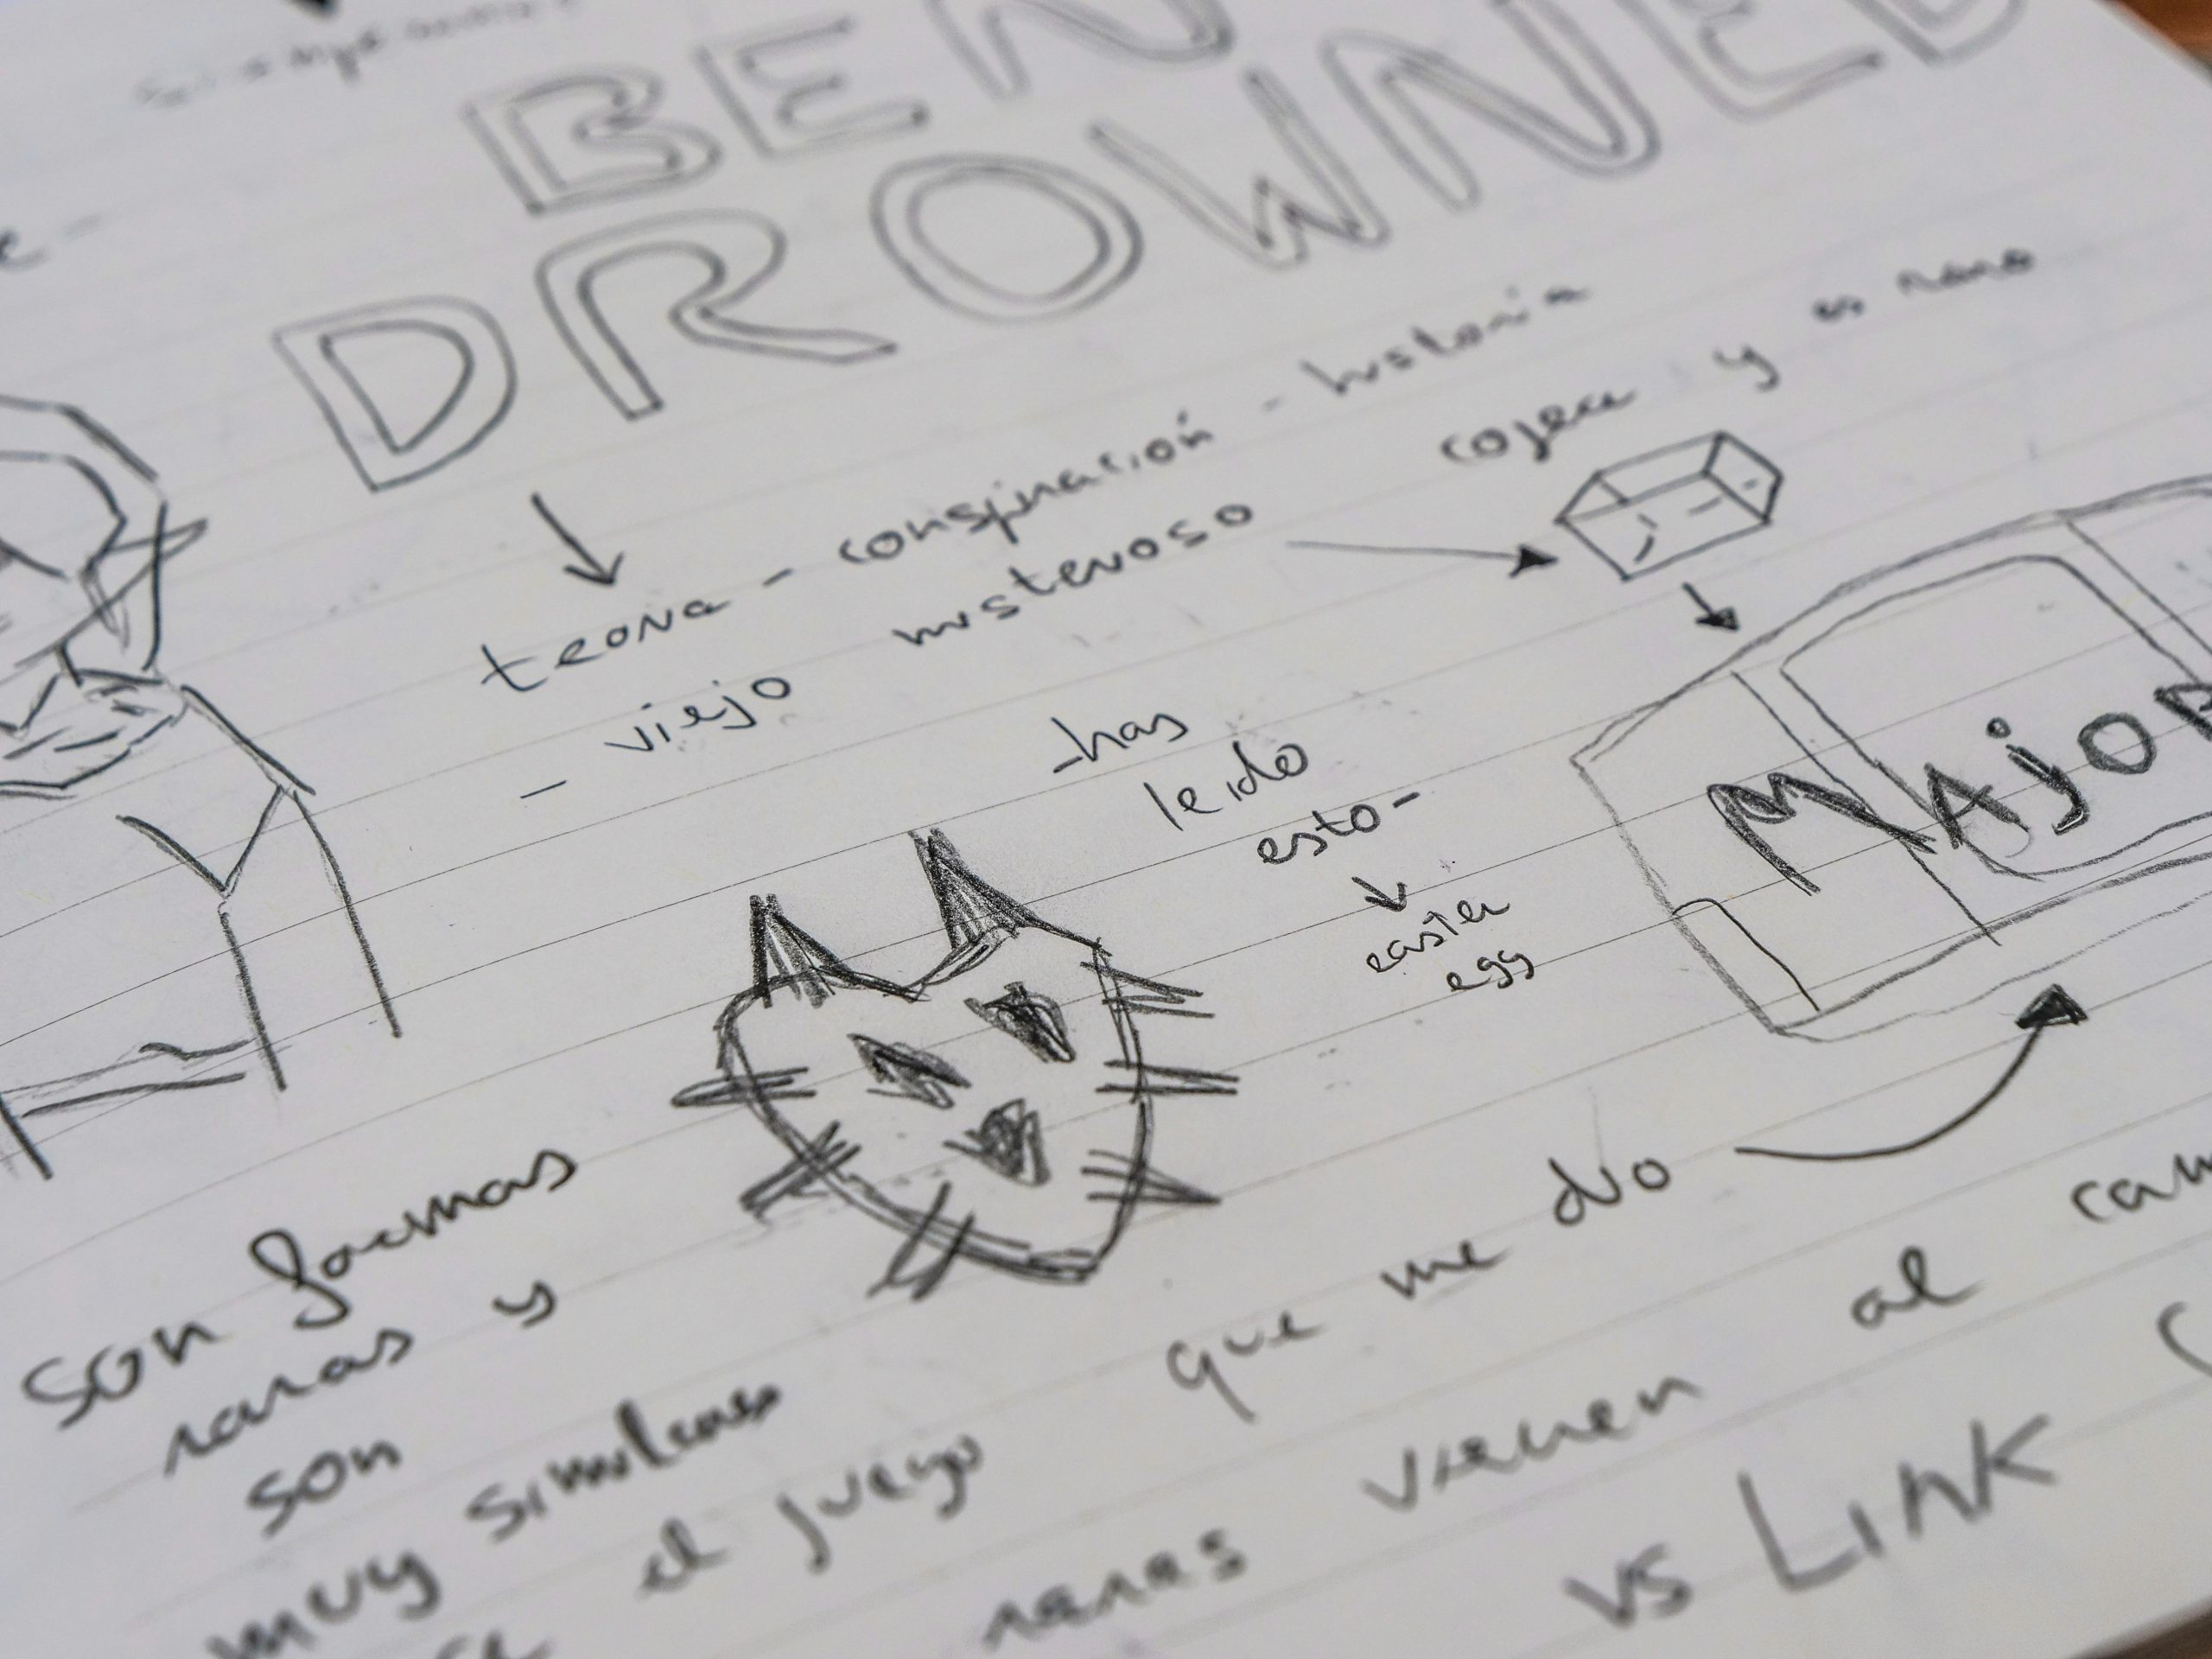 BEN
DROWNED
teoria - conspiración - historia
- viejo misterioso
coger y es raro
-has
leido
esto-
easter
egg
MAJOR
son formas
raras y
son
muy similares
el juego que me dio
raras vienen al
vs Link